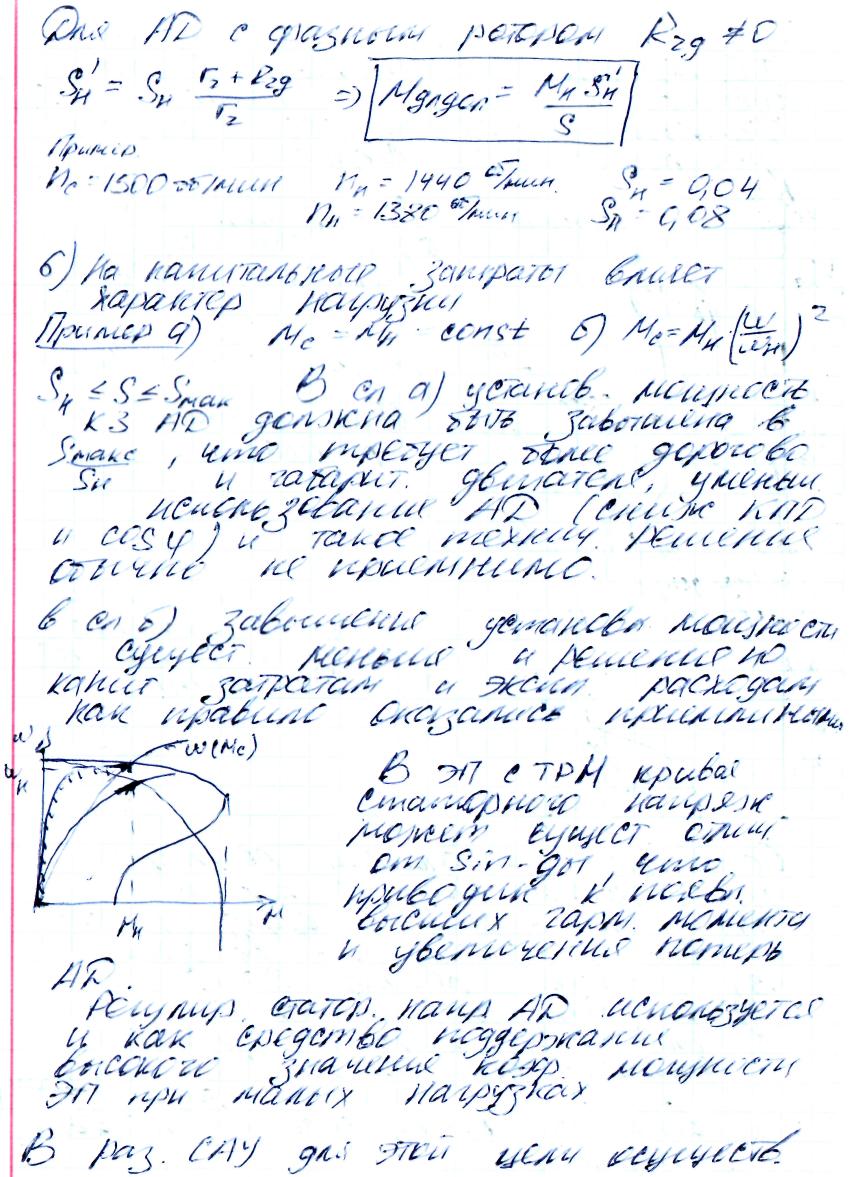 Для АД с фазным ротором R₂g ≠ 0
Sн' = Sн (r₂ + R₂g)/r₂ ⇒ Мдлдоп = Мн Sн'/S
Пример
nс = 1500 об/мин nн = 1440 об/мин. Sн = 0,04
nн = 1380 об/мин Sн = 0,08
б) На капитальные затраты влияет
характер нагрузки
Пример а) Мс = Мн = const б) Мс = Мн (ω/ωзн)²
Sн ≤ S ≤ Sмак В сл а) установ. мощность
КЗ АД должна быть завышена в
Sмакс/Sн, что требует более дорогово
и габарит. двигателя, уменьш
использование АД (сниж КПД
и cosφ) и такое технич. решение
обычно не приемнимо.
в сл б) завышения установы мощности
сущест. меньше и решения по
капит затратам и экспл. расходам
как правило оказались
ω
ωн
ω(Мс)
Мн
М
В ЭП с ТРН кривая
статорного напряж
может сущест отлич
от Sin-ды, что
приводит к появл.
высших гарм. момента
и увеличения потерь
АД.
Регулир. статор. напр АД используется
и как средство поддержания
высокого значения коэр. мощности
ЭП при малых нагрузках
В раз. САУ для этой цели осуществ.